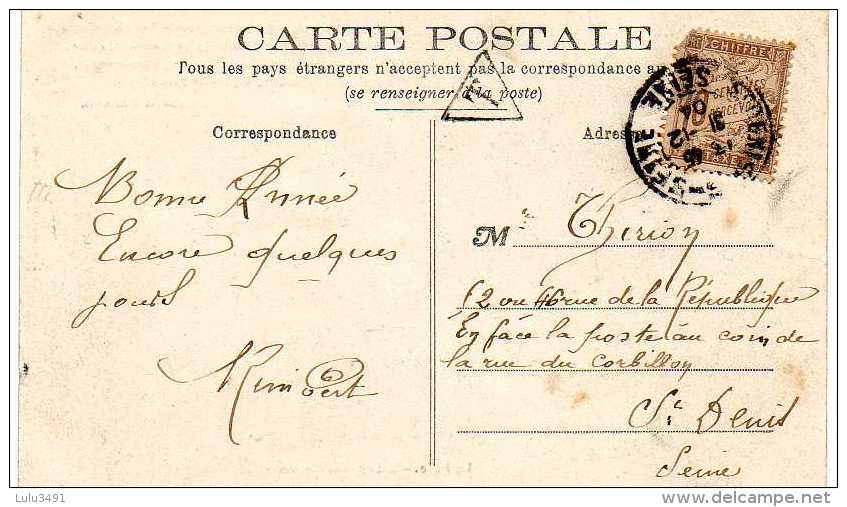 CARTE POSTALE
Tous les pays étrangers n'acceptent pas la correspondance au
(se renseigner à la poste)
T
CHIFFRE
TAXE
SEINE
Correspondance
Adresse
Bonne Année
Encore quelques
jours
Rimbert
M Thirion
62 ou 46 rue de la République
En face la poste au coin de
la rue du Corbillon
St Denis
Seine
Lulu3491
delcampe.net